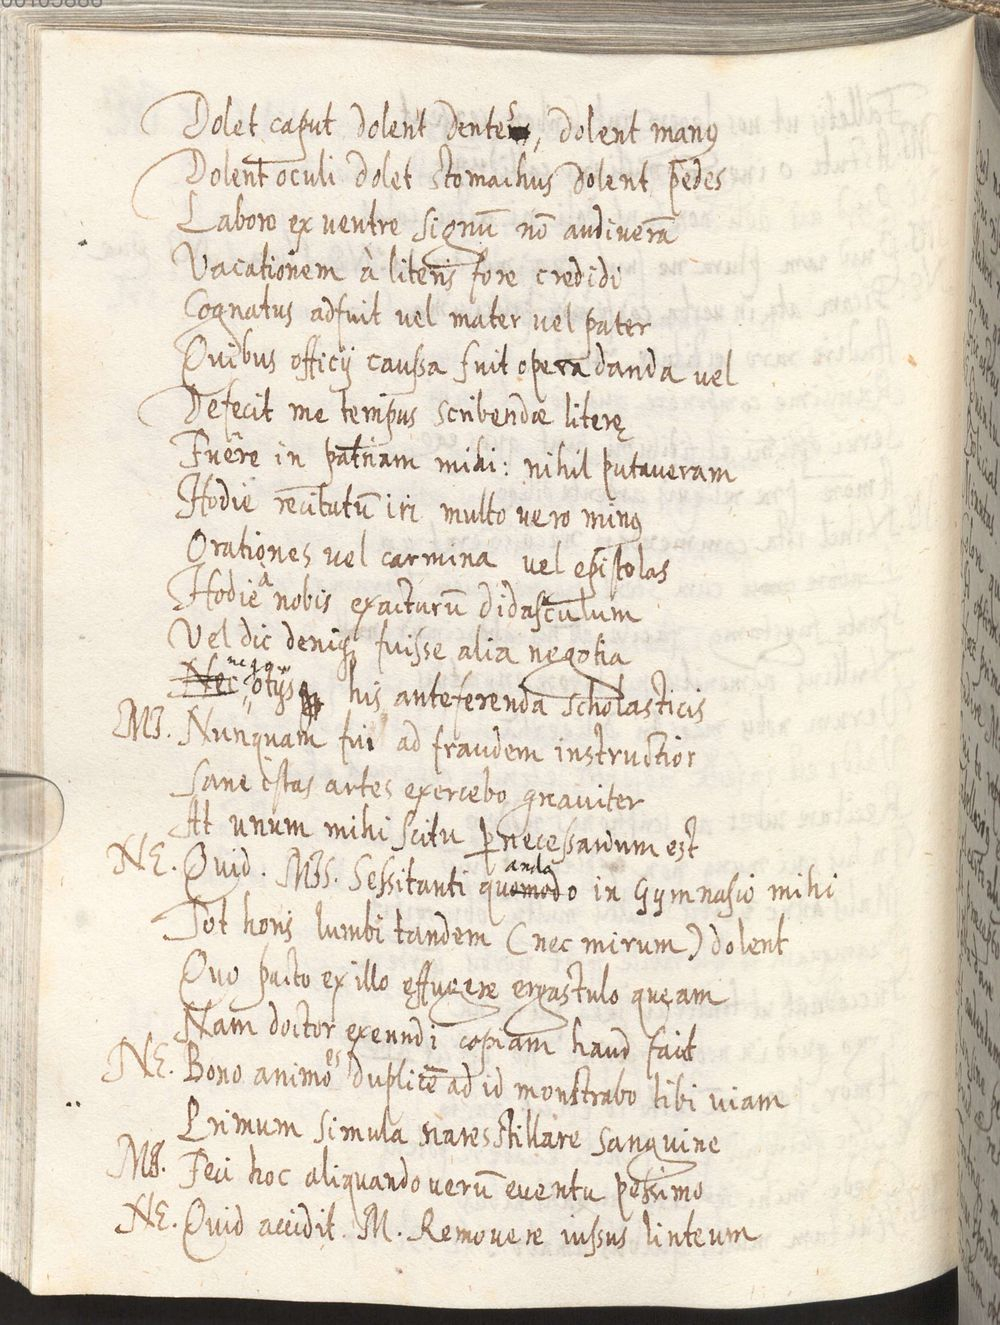 Dolet caput dolent dentes, dolent manꝰ
Dolent oculi dolet stomachus dolent pedes
Laboro ex ventre signũ nõ audiverã
Vacationem à literis fore credidi
Cognatus adfuit vel mater vel pater
Quibus officij caussa fuit opera danda vel
Defecit me tempus scribendæ literę
Fuêre in patriam mihi: nihil putaveram
Hodie recitatũ iri multo vero minꝰ
Orationes vel carmina vel epistolas
Hodie à nobis exacturũ didasculum
Vel dic deniqꝫ fuisse alia negotia
negotijs his anteferenda scholasticis
MI. Nunquam fui ad fraudem instructior
Sane istas artes exercebo gnaviter
At unum mihi scitu pernecessarium est
NE. Quid. MIS. Sessitanti quando in Gymnasio mihi
Tot horis lumbi tandem (nec mirum) dolent
Quo pacto ex illo effugere ergastulo queam
Nam doctor exeundi copiam haud facit
NE. Bono animo es duplicẽ ad id monstrabo tibi viam
Primum simula nares stillare sanguine
MIS. Feci hoc aliquando verũ eventu pessimo
NE. Quid accidit. M. Removere iussus linteum